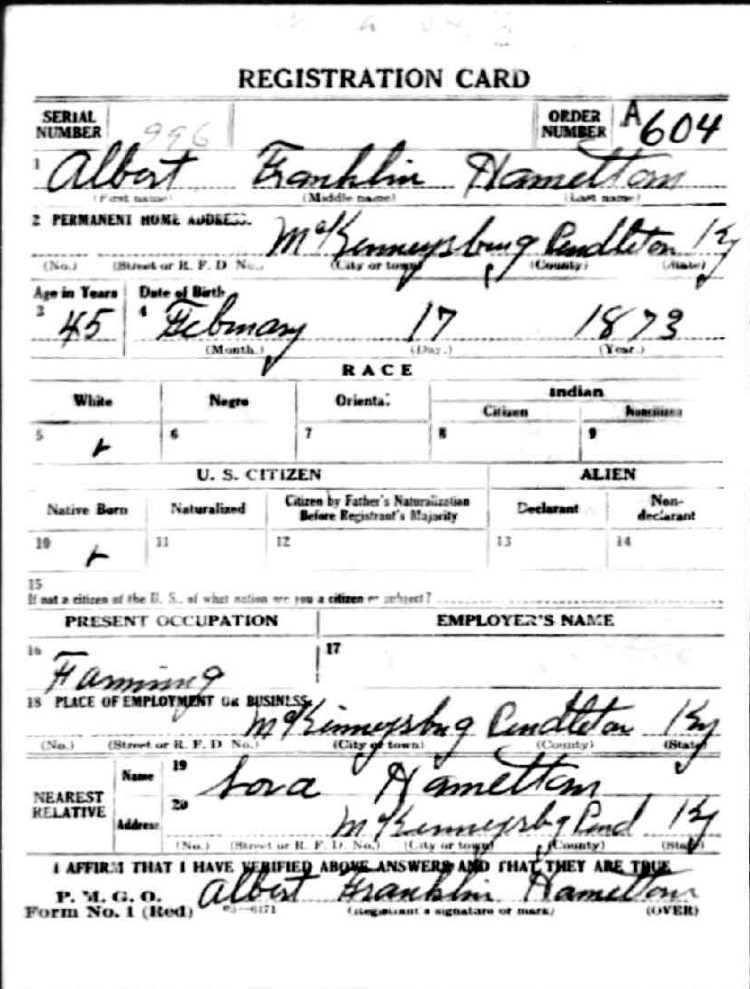 REGISTRATION CARD
SERIAL NUMBER 996 ORDER NUMBER A604
1 Albert Franklin Hamelton
(First name) (Middle name) (Last name)
2 PERMANENT HOME ADDRESS:
McKenneysburg Pendleton Ky
(No.) (Street or R. F. D No.) (City or town) (County) (State)
Age in Years Date of Birth
3 45 4 February 17 1873
(Month.) (Day.) (Year.)
RACE
White Negro Oriental Indian
Citizen Noncitizen
5 6 7 8 9
U. S. CITIZEN ALIEN
Native Born Naturalized Citizen by Father's Naturalization Before Registrant's Majority Declarant Non-declarant
10 11 12 13 14
15
If not a citizen of the U. S., of what nation are you a citizen or subject?
PRESENT OCCUPATION EMPLOYER'S NAME
16 Farming 17
18 PLACE OF EMPLOYMENT OR BUSINESS:
McKinneysbug Pendleton Ky
(No.) (Street or R. F. D No.) (City or town) (County) (State)
NEAREST RELATIVE Name 19 Lova Hamelton
Address 20 McKenneysbg Pend Ky
(No.) (Street or R. F. D. No.) (City or town) (County) (State)
I AFFIRM THAT I HAVE VERIFIED ABOVE ANSWERS AND THAT THEY ARE TRUE
P. M. G. O.
Form No. 1 (Red) 03—6171 Albert Franklin Hamelton
(Registrant's signature or mark) (OVER)